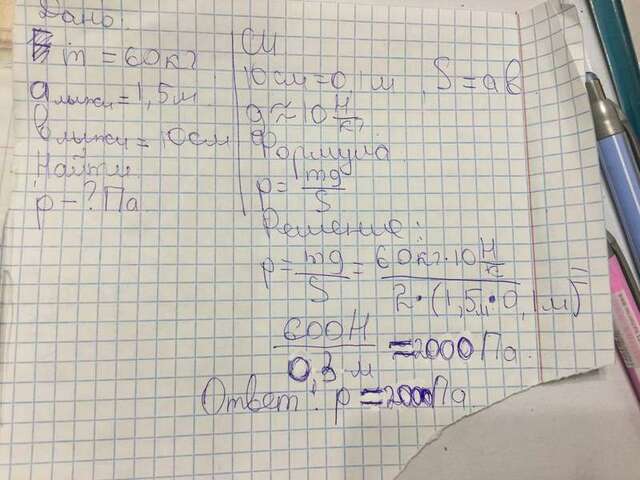 Дано:
m = 60кг
aлыжи = 1,5м
bлыжи = 10см
Найти
p – ? Па
СИ
10см = 0,1м, S = ab
g ≈ 10 Н/кг
Формула
p = mg/S
Решение:
p = mg/S = 60кг·10 Н/к / 2·(1,5м·0,1м) =
600Н / 0,3 м = 2000 Па.
Ответ: p = 2000Па.